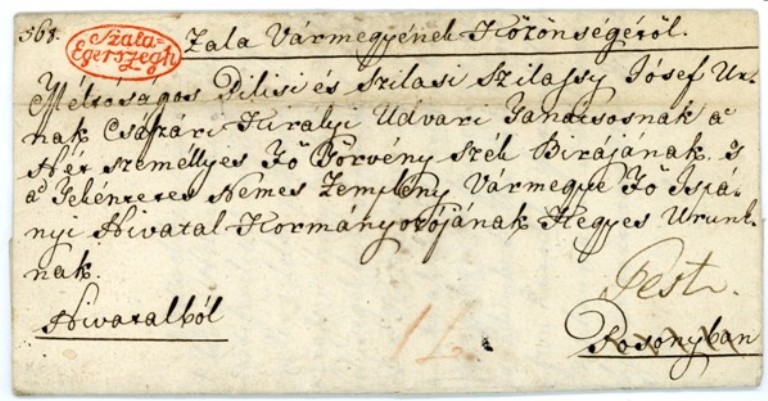 568.
Szala=
Egerszegh
Zala Vármegyének Közönségéről.
Méltóságos Pilisi és Szilasi Szilassy Jósef Ur-
nak Császári Királyi Udvari Tanácsosnak a'
Hét személlyes Fő Törvény Szék Birájának. 's
a' Tekéntetes Nemes Zemplény Vármegye Fő Ispá-
nyi Hivatal Kormányozójának Kegyes Urunk-
nak.
Pest.
Hivatalból
Posonyban